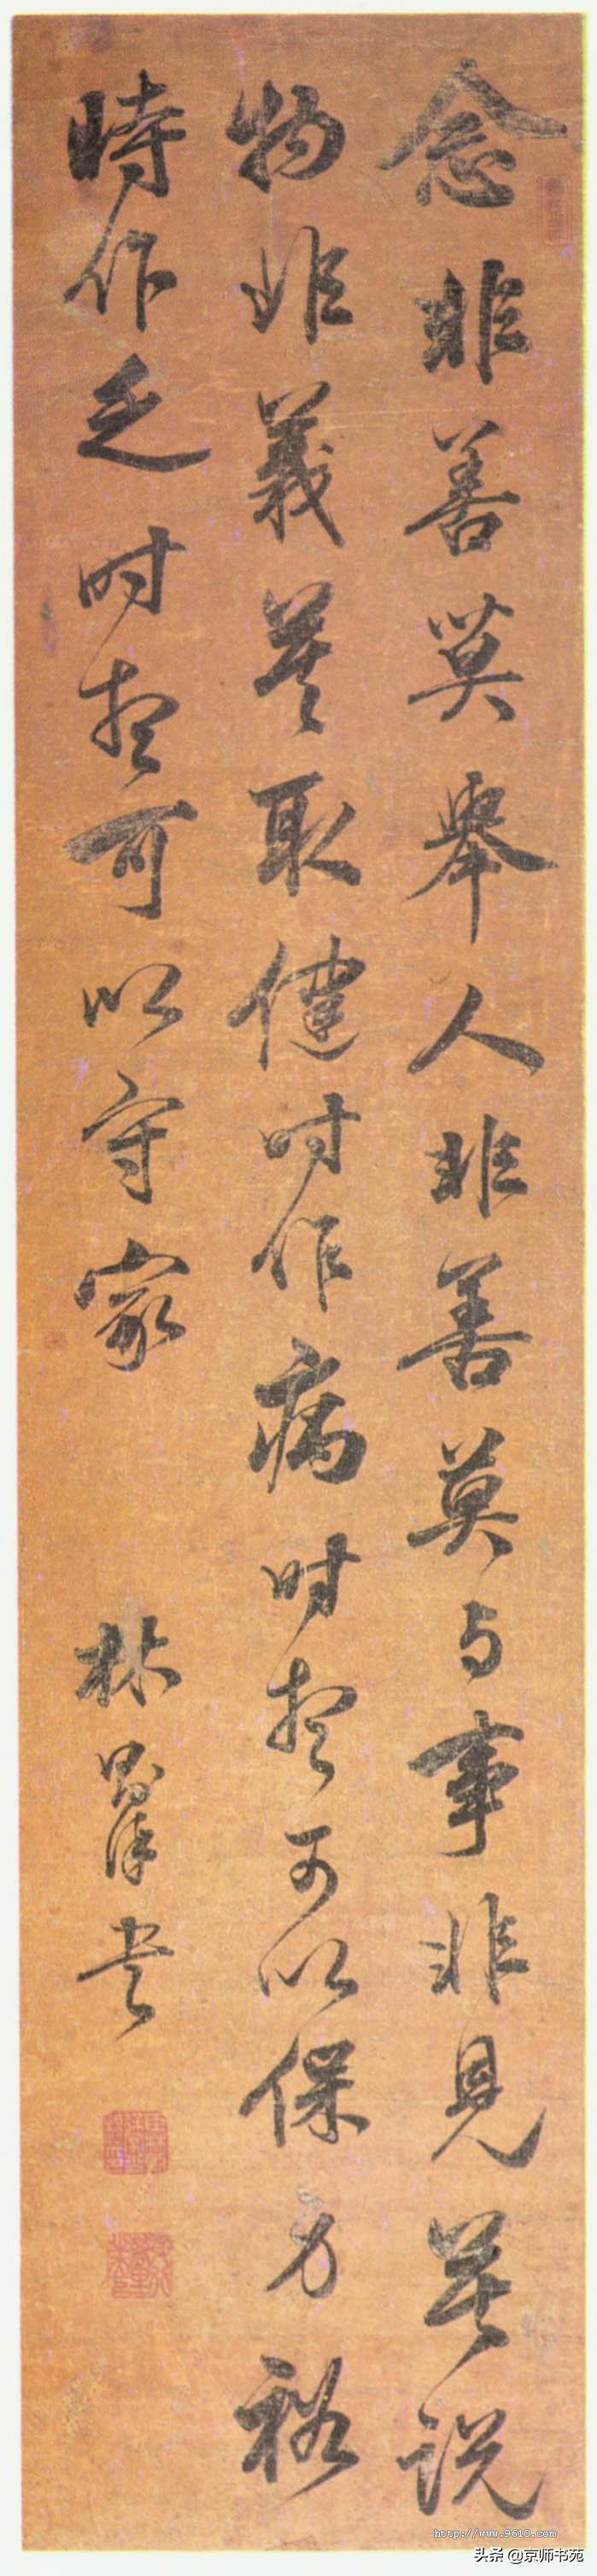 念非善莫舉人非善莫与事非見莫说
物非義莫取健时作病时想可以保身裕
時作乏时想可以守家
林皋书
http://www.9610.com
头条 @京师书苑